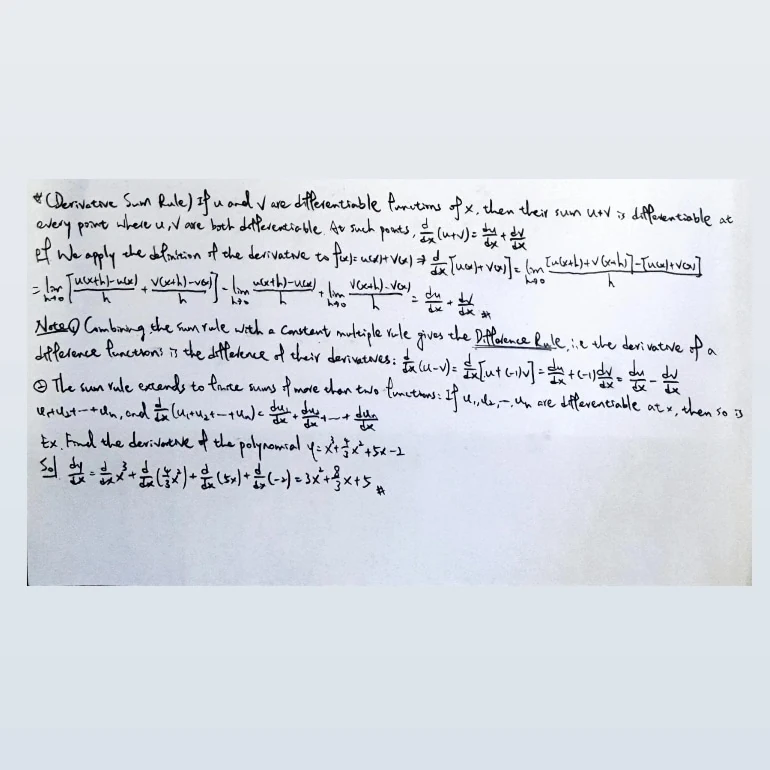 * (Derivative Sum Rule) If u and v are differentiable functions of x, then their sum u+v is differentiable at
every point where u, v are both differentiable. At such points, d/dx (u+v) = du/dx + dv/dx
pf We apply the definition of the derivative to f(x) = u(x)+v(x) ⇒ d/dx [u(x)+v(x)] = lim h→0 [u(x+h)+v(x+h)]-[u(x)+v(x)] / h
= lim h→0 [ u(x+h)-u(x) / h + v(x+h)-v(x) / h ] = lim h→0 u(x+h)-u(x) / h + lim h→0 v(x+h)-v(x) / h = du/dx + dv/dx #
Note ① Combining the sum rule with a constant multiple rule gives the Difference Rule, i.e the derivative of a
difference functions is the difference of their derivatives: d/dx (u-v) = d/dx [u+(-1)v] = du/dx + (-1) dv/dx = du/dx - dv/dx
② The sum rule extends to finite sums of more than two functions: If u₁, u₂, …, uₙ are differentiable at x, then so is
u₁+u₂+…+uₙ, and d/dx (u₁+u₂+…+uₙ) = du₁/dx + du₂/dx + … + duₙ/dx
Ex. Find the derivative of the polynomial y = x³ + 4/3 x² + 5x - 2
Sol dy/dx = d/dx x³ + d/dx (4/3 x²) + d/dx (5x) + d/dx (-2) = 3x² + 8/3 x + 5 #